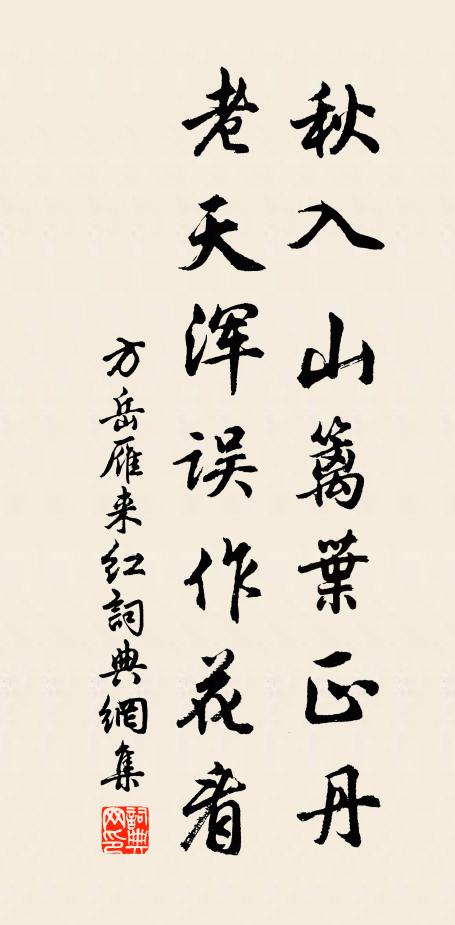 秋入山篱葉正丹
老天浑误作花看
方岳雁来红詞典網集
詞典網印